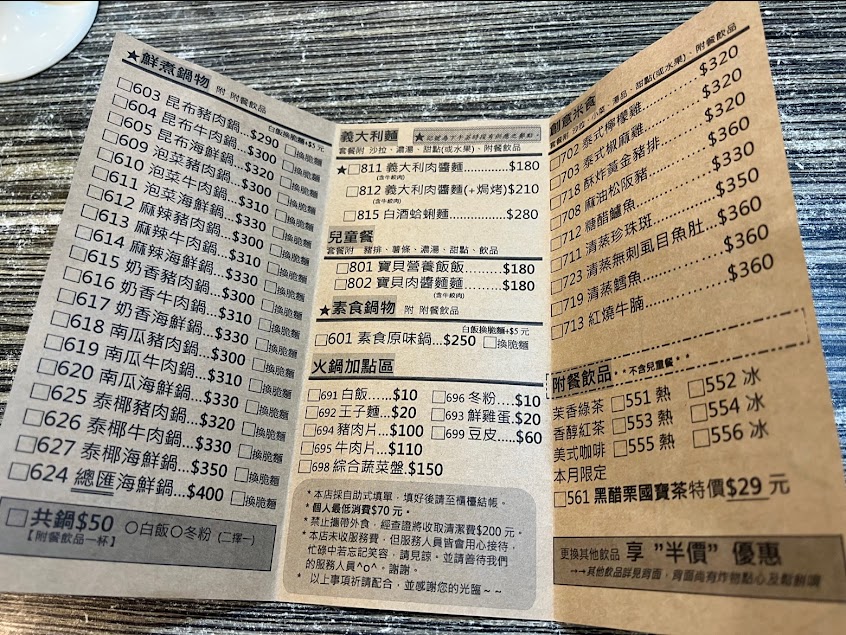 ★鮮煮鍋物 附 附餐飲品
白飯換脆麵+$5元
□603 昆布豬肉鍋...$290 □換脆麵
□604 昆布牛肉鍋...$300 □換脆麵
□605 昆布海鮮鍋...$320 □換脆麵
□609 泡菜豬肉鍋...$300 □換脆麵
□610 泡菜牛肉鍋...$310 □換脆麵
□611 泡菜海鮮鍋...$330 □換脆麵
□612 麻辣豬肉鍋...$300 □換脆麵
□613 麻辣牛肉鍋...$310 □換脆麵
□614 麻辣海鮮鍋...$330 □換脆麵
□615 奶香豬肉鍋...$300 □換脆麵
□616 奶香牛肉鍋...$310 □換脆麵
□617 奶香海鮮鍋...$330 □換脆麵
□618 南瓜豬肉鍋...$300 □換脆麵
□619 南瓜牛肉鍋...$310 □換脆麵
□620 南瓜海鮮鍋...$330 □換脆麵
□625 泰椰豬肉鍋...$320 □換脆麵
□626 泰椰牛肉鍋...$330 □換脆麵
□627 泰椰海鮮鍋...$350 □換脆麵
□624 總匯海鮮鍋...$400 □換脆麵
□共鍋$50 ○白飯○冬粉 (二擇一)
【附餐飲品一杯】
義大利麵 ★記號為下午茶時段有供應之餐點。
套餐附 沙拉、濃湯、甜點(或水果)、附餐飲品
★□811 義大利肉醬麵...........$180
(含牛絞肉)
□812 義大利肉醬麵(+焗烤)$210
(含牛絞肉)
□815 白酒蛤蜊麵..............$280
兒童餐
套餐附 豬排、薯條、濃湯、甜點、飲品
□801 寶貝營養飯飯.........$180
□802 寶貝肉醬麵麵.........$180
(含牛絞肉)
★素食鍋物 附 附餐飲品
白飯換脆麵+$5元
□601 素食原味鍋...$250 □換脆麵
火鍋加點區
□691 白飯......$10 □696 冬粉....$10
□692 王子麵...$20 □693 鮮雞蛋.$20
□694 豬肉片...$100 □699 豆皮.....$60
□695 牛肉片...$110
□698 綜合蔬菜盤.$150
*本店採自助式填單，填好後請至櫃檯結帳。
*個人最低消費$70 元。
*禁止攜帶外食，經查證將收取清潔費$200 元。
*本店未收服務費，但服務人員皆會用心接待，
忙碌中若忘記笑容，請見諒。並請善待我們
的服務人員^o^。謝謝。
* 以上事項祈請配合，並感謝您的光臨～～
創意米食
套餐附 沙拉、小菜、湯品、甜點(或水果)、附餐飲品
□702 泰式檸檬雞...........$320
□703 泰式椒麻雞...........$320
□718 酥炸黃金豬排........$320
□708 麻油松阪豬...........$360
□712 糖醋鱸魚..............$330
□711 清蒸珍珠斑...........$350
□723 清蒸無刺虱目魚肚...$360
□719 清蒸鱈魚..............$360
□713 紅燒牛腩..............$360
附餐飲品 **不含兒童餐**
茉香綠茶 □551 熱 □552 冰
香醇紅茶 □553 熱 □554 冰
美式咖啡 □555 熱 □556 冰
本月限定
□561 黑醋栗國寶茶特價$29 元
更換其他飲品 享 ”半價” 優惠
→→其他飲品詳見背面，背面尚有炸物點心及鬆餅唷